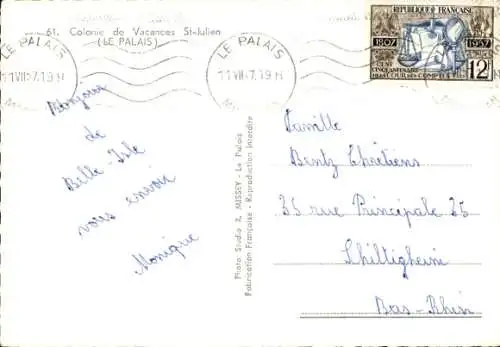 61. Colonie de Vacances St-Julien
(LE PALAIS)
LE PALAIS
LE PALAIS
11 VII 57.19H
RÉPUBLIQUE FRANÇAISE
1807
1957
CENT CINQUANTENAIRE
DE LA COUR DES COMPTES
12F
Bonjour
de
Belle-Isle
vous envoi
Monique
Photo Studio R. MISSEY - Le Palais
Fabrication Française - Reproduction Interdite
Famille
Bentz Chrétiens
35 rue Principale 35
Schiltigheim
Bas-Rhin